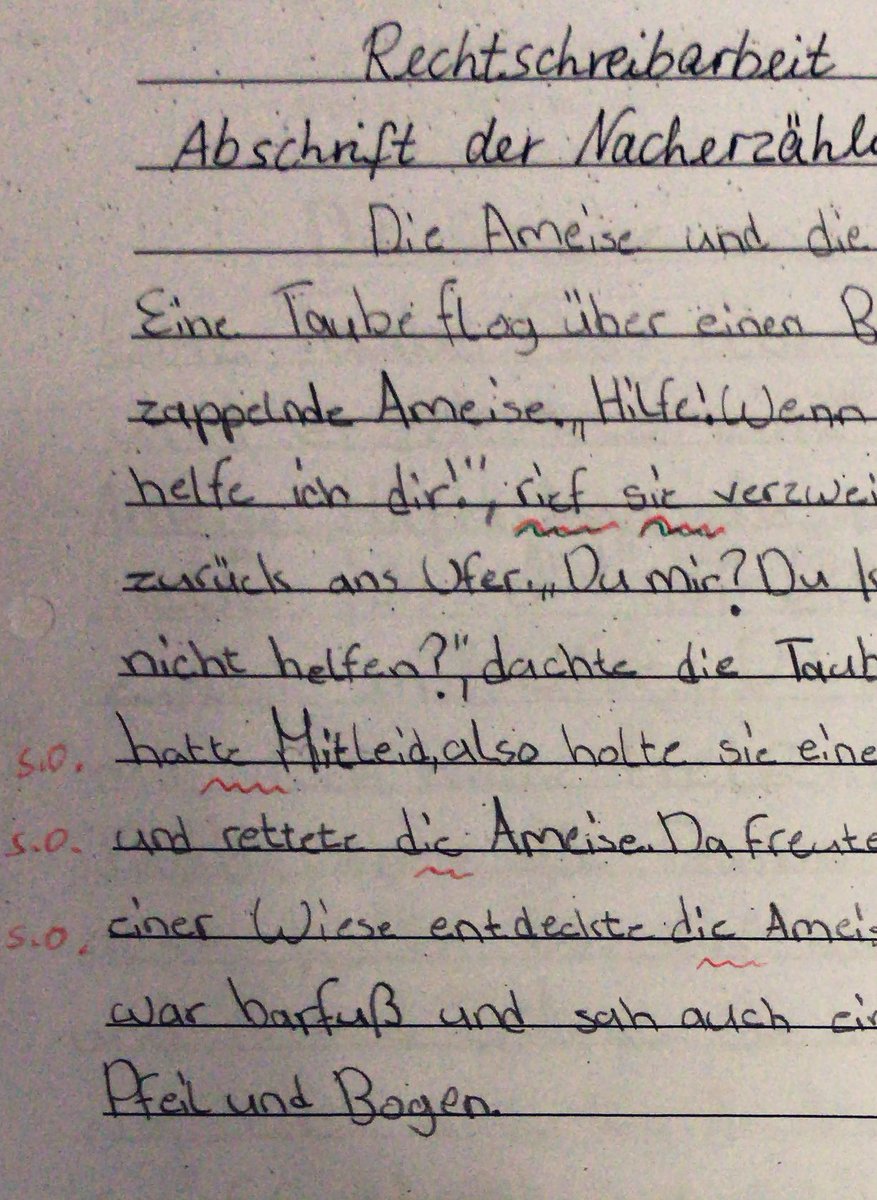 Rechtschreibarbeit
Abschrift der Nacherzähl
Die Ameise und die
Eine Taube flog über einen B
zappelnde Ameise. „Hilfe! Wenn
helfe ich dir!", rief sie verzwei
zurück ans Ufer. „Du mir? Du k
nicht helfen?", dachte die Taub
s.o. hatte Mitleid, also holte sie eine
s.o. und rettete die Ameise. Da freute
s.o. einer Wiese entdeckte die Ameis
war barfuß und sah auch ein
Pfeil und Bogen.